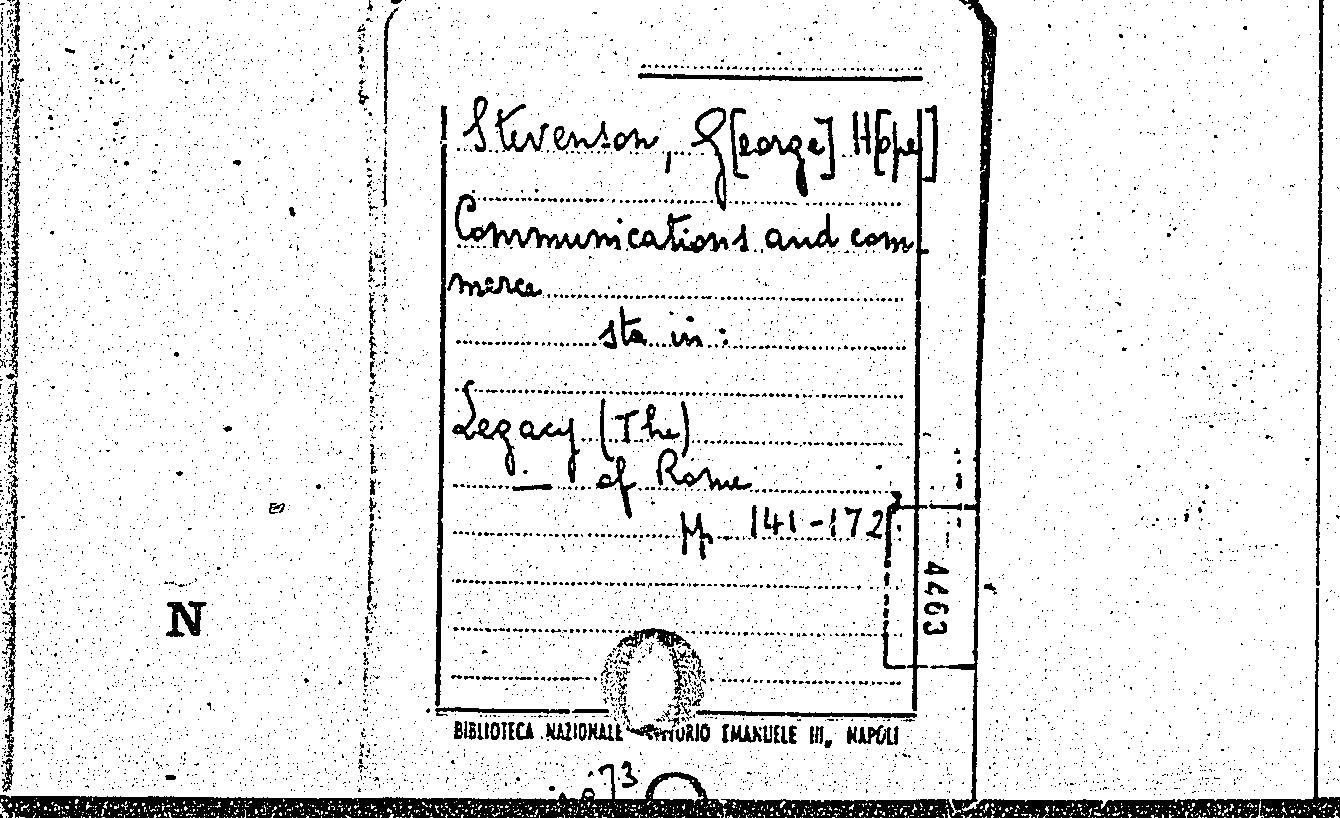 Stevenson, G[eorge] H[ope]
Communications and com-
merce
sta in:
Legacy (The)
— of Rome
pp. 141-172
4463
N
BIBLIOTECA NAZIONALE VITTORIO EMANUELE III, NAPOLI
73